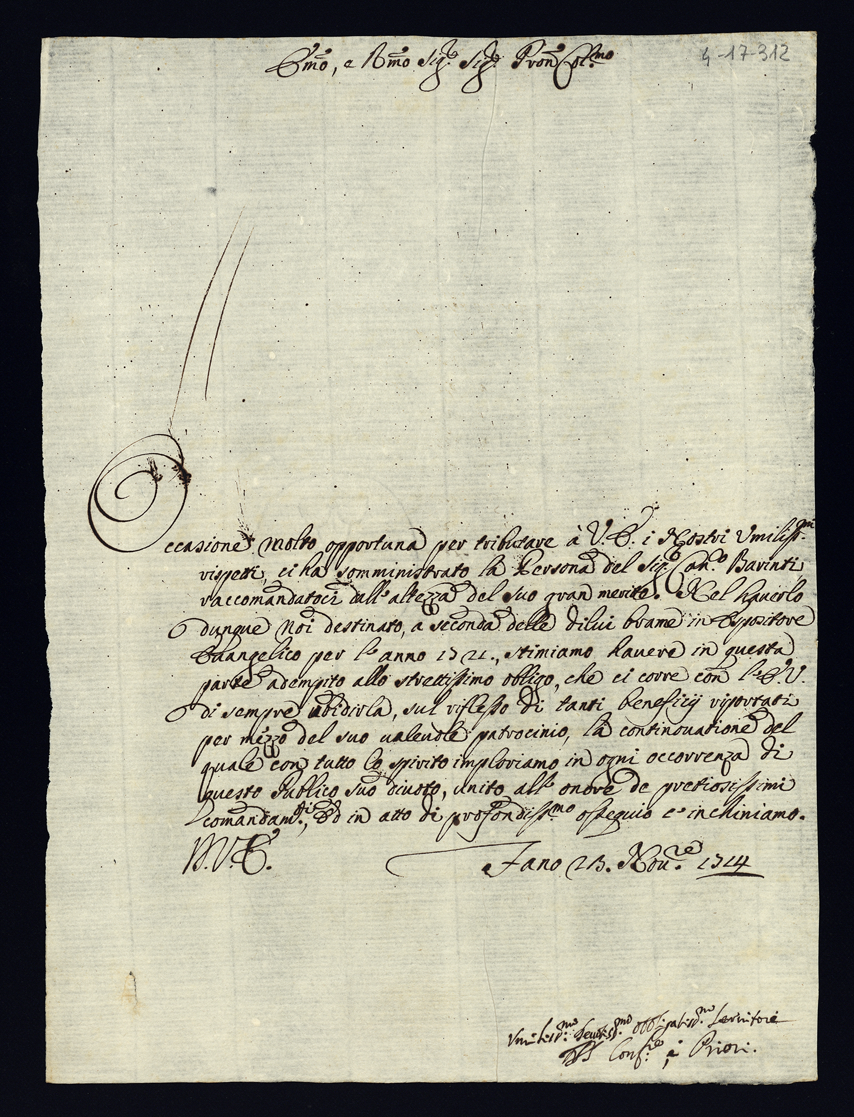 Em̃o, e Rm̃o Sig.r Sig.r Pron Col.mo
4-17-312
Occasione molto opportuna per tributare à V.E. i Nostri Vmiliss.mi
rispetti, ci ha somministrato la Persona del Sig.r Can.co Barinti
raccomandatoci dall'altezza del suo gran merito. Nel hauerlo
dunque Noi destinato, a seconda delle dilui brame in Espositore
Euangelico per l'anno 1721., stimiamo hauere in questa
parte adempito allo strettissimo obligo, che ci corre con l'E.V.
di sempre ubidirla, sul riflesso di tanti beneficij riportati
per mezzo del suo ualeuole patrocinio, la continouatione del
quale con tutto lo spirito imploriamo in ogni occorrenza di
questo Publico suo diuoto, unito all'onore de pretiosissimi
comandam.ti, Ed in atto di profondiss.mo ossequio c'inchiniamo.
D.V.E.
Fano 23. Nou.re 1714
Vmiliss.mi Deuotiss.mi Obbligatiss.mi Seruitori
Conf.re, e Priori.